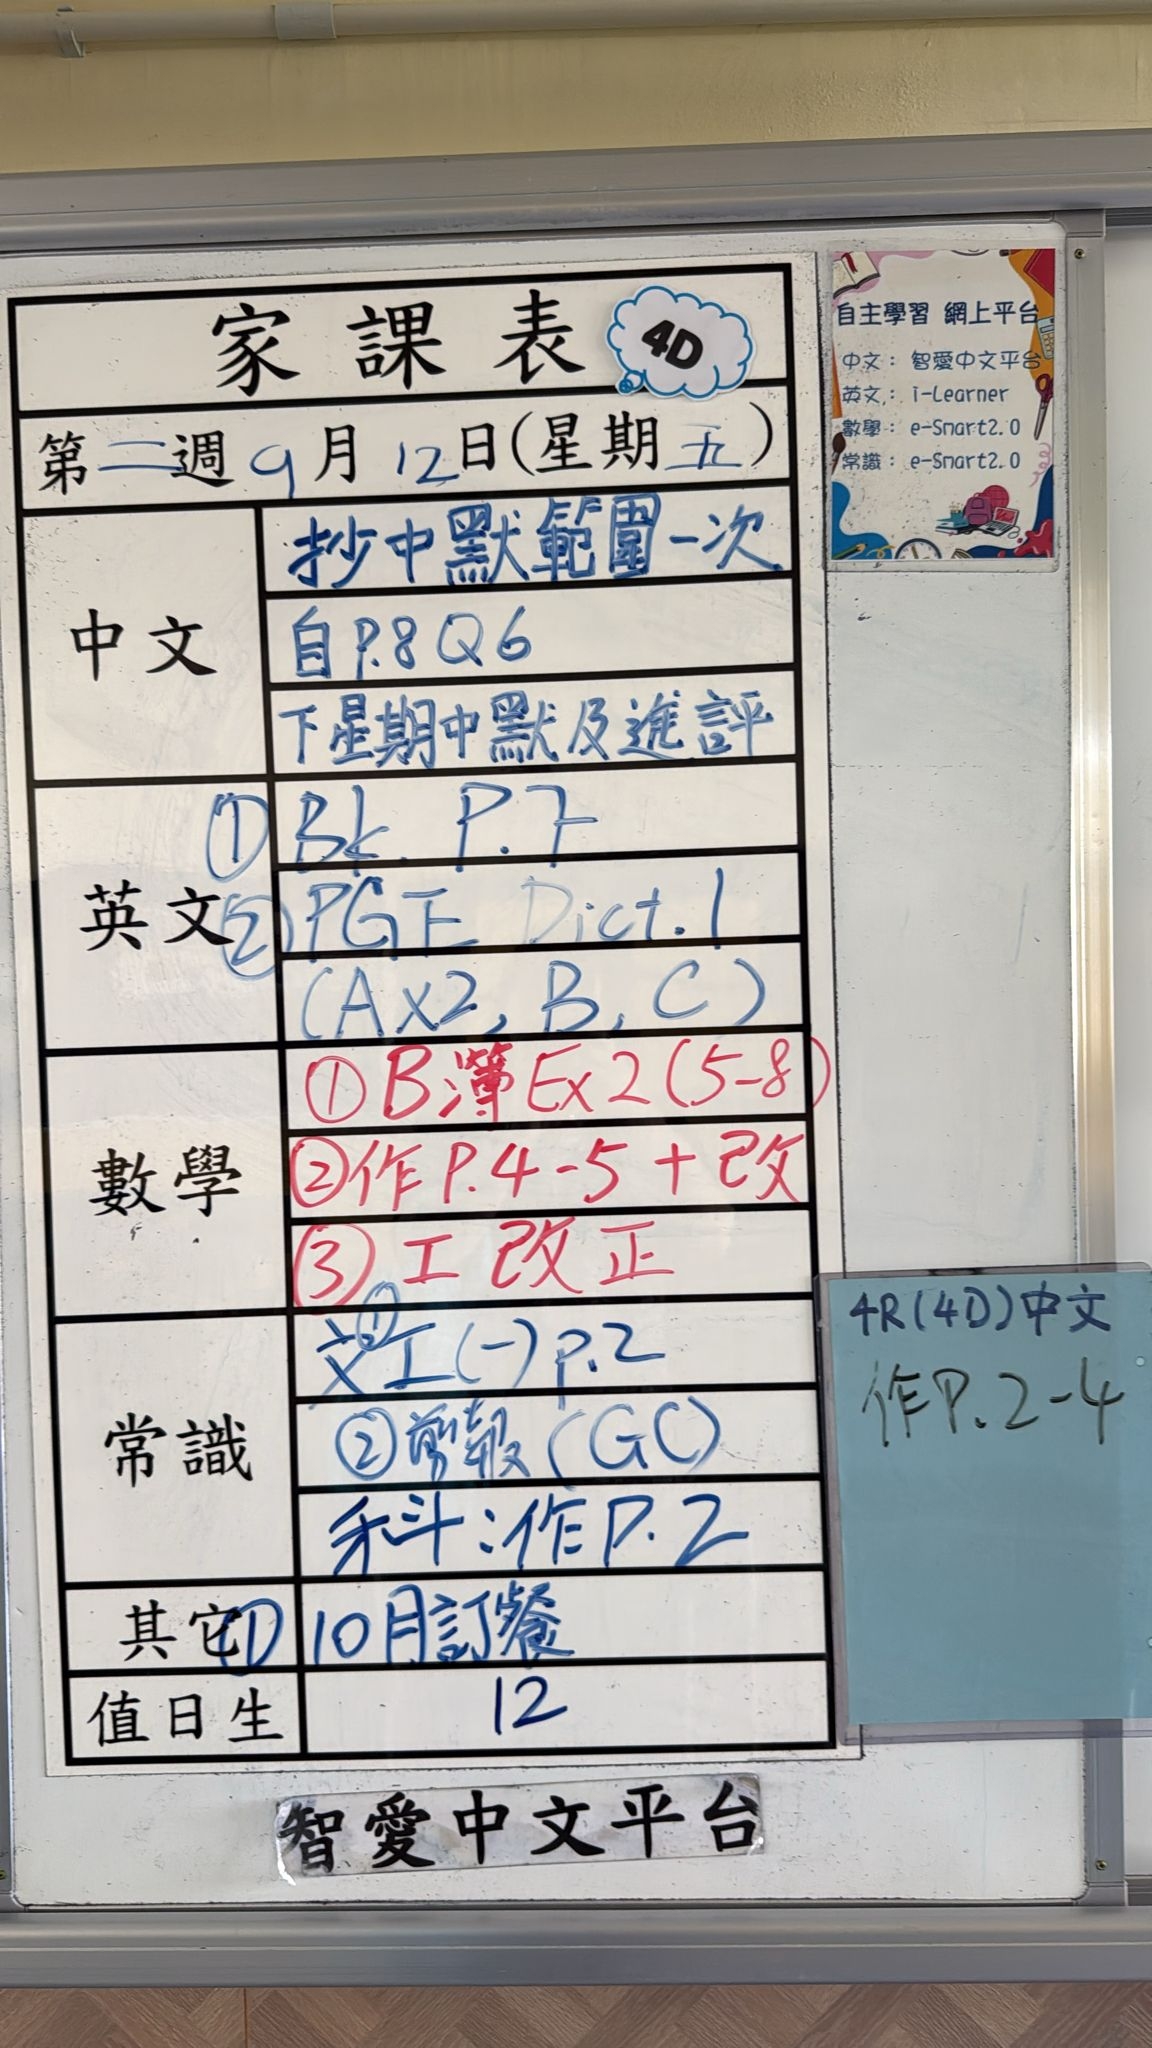 家課表 4D
第二週 9月12日(星期五)
中文
抄中默範圍一次
自P.8 Q6
下星期中默及進評
英文
① Bk. P.7
② PGE Dict.1
(Ax2, B, C)
數學
① B簿 Ex2 (5-8)
② 作P.4-5 + 改
③ 工改正
常識
① 文工(一) p.2
② 剪報 (GC)
科:作P.2
其它
① 10月訂餐
值日生
12
智愛中文平台
自主學習 網上平台
中文: 智愛中文平台
英文: i-Learner
數學: e-Smart2.0
常識: e-Smart2.0
4R(4D)中文
作P.2-4